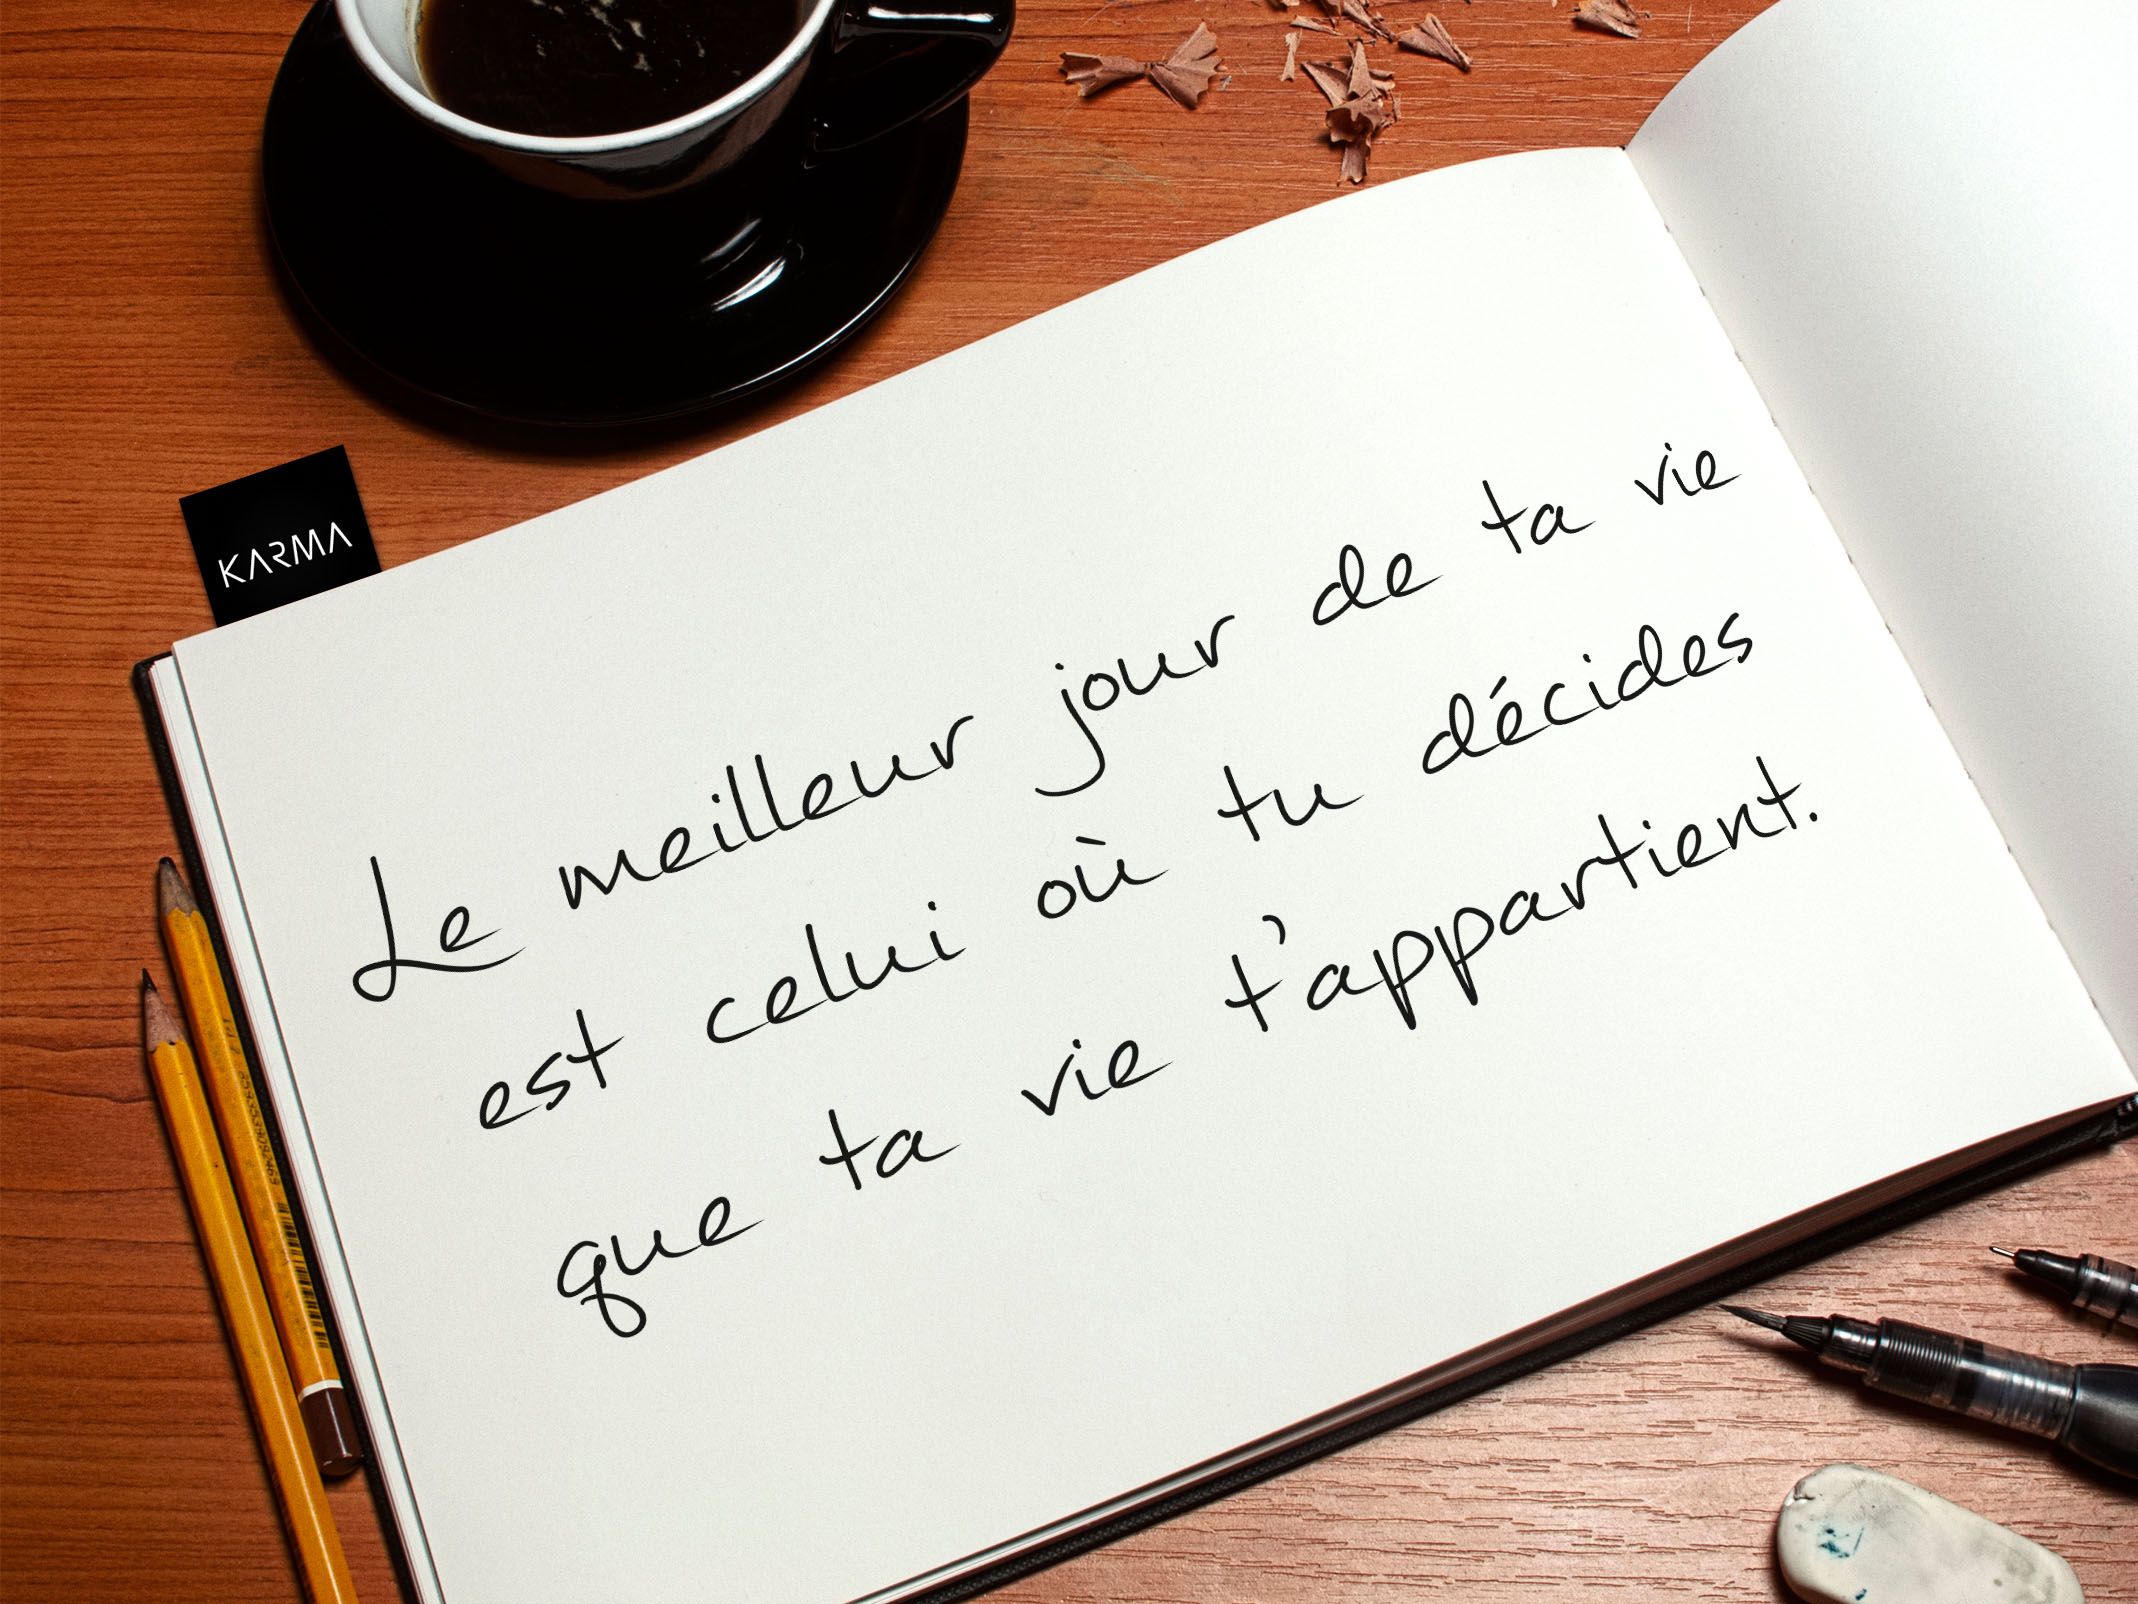 KARMA
Le meilleur jour de ta vie
est celui où tu décides
que ta vie t'appartient.